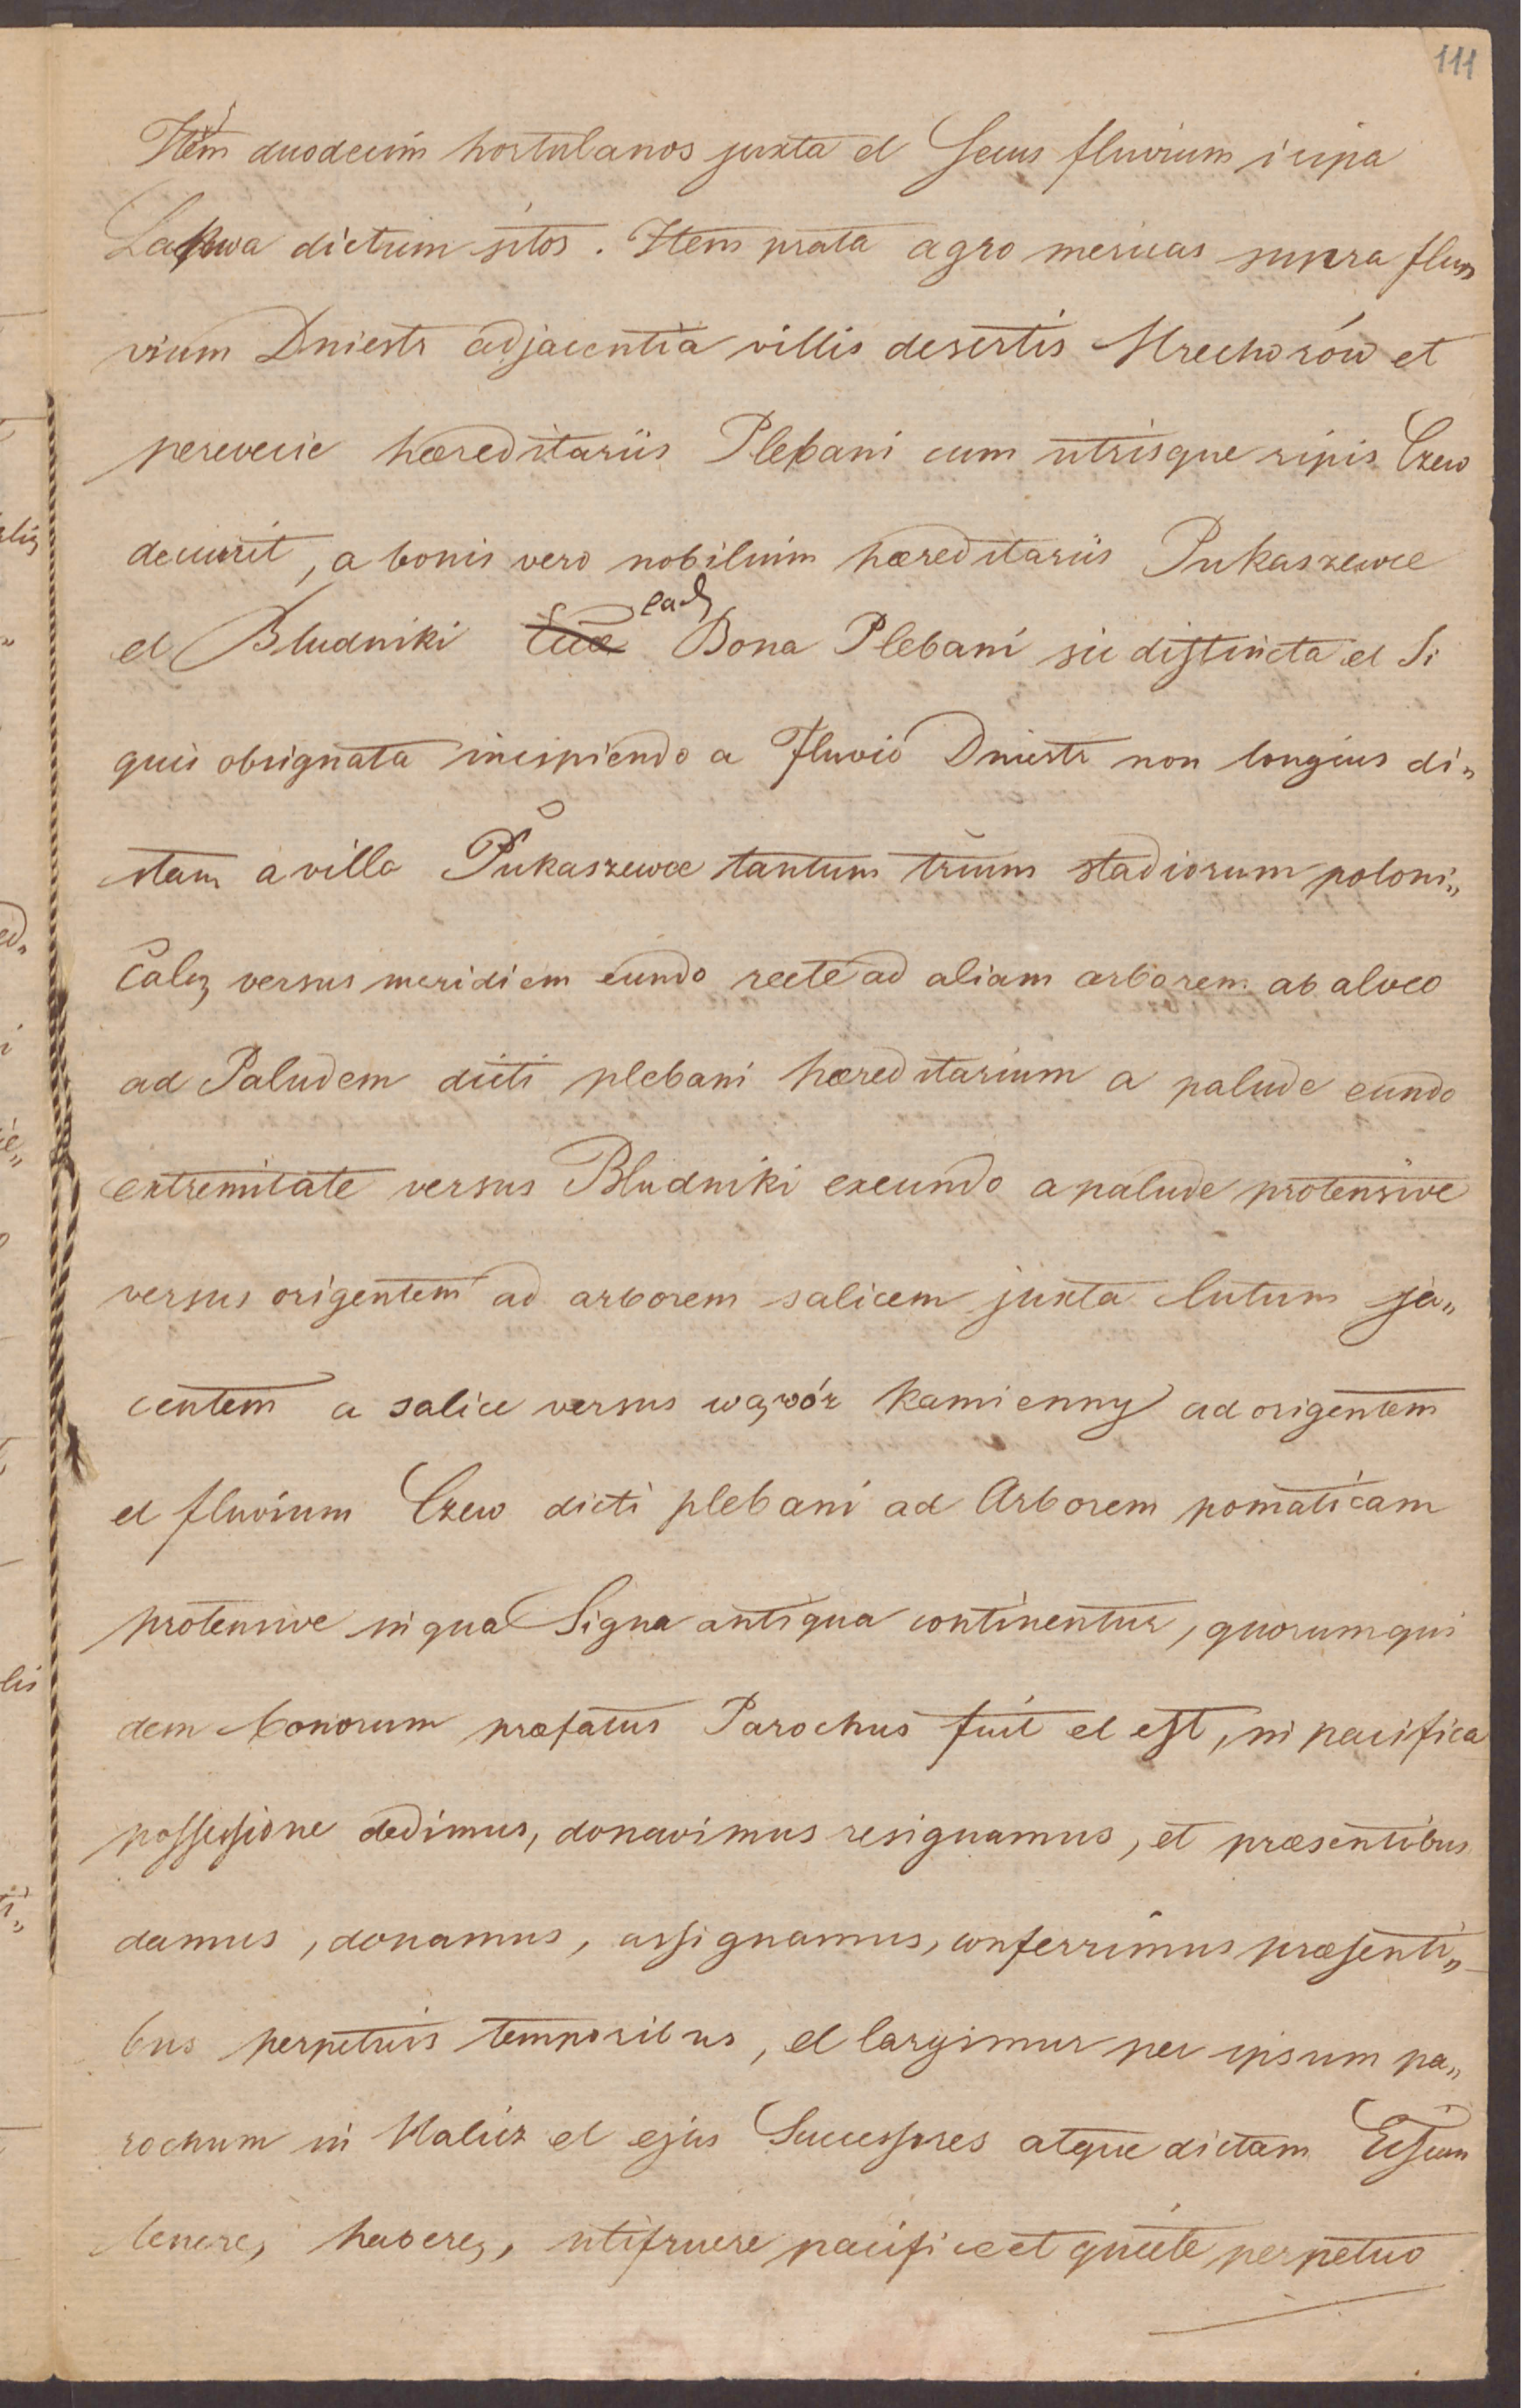 111
Item duodecim hortulanos juxta et Secus fluvium i ripa
Lakwa dictum sitos. Item prata agro mericas supra flu„
vium Dniestr adjacentia villis desertis Hrechorów et
perevecie hæreditariis Plebani cum utrisque ripis Czew
decurrit, a bonis vero nobilium hæreditariis Pukaszewce
et Bludniki eadz Bona Plebani sic distincta et Si
quis obsignata incipiendo a Fluvio Dniestr non longius di„
stam a villa Pukaszewce tantum trium stadiorum poloni„
calz versus meridiem eundo recte ad aliam arborem ab alveo
ad Paludem dicti plebani hæreditarium a palude eundo
extremitate versus Bludniki exeundo a palude protensive
versus origentem ad arborem salicem juxta lutum ja„
centem a salice versus wąwóz kamienny ad origentem
et fluvium Czew dicti plebani ad Arborem pomaticam
protensive in qua Signa antiqua continentur, quorumqui
dem bonorum præfatus Parochus fuit et est, in pacifica
possessione dedimus, donavimus resignamus, et præsentibus
damus, donamus, assignamus, conferrimus præsenti„
bus perpetuis temporibus, et largimur per ipsum pa„
rochum in Halicz et ejus Successores atque dictam
tenerez, haberez, utifruere pacifice et quiete perpetuo